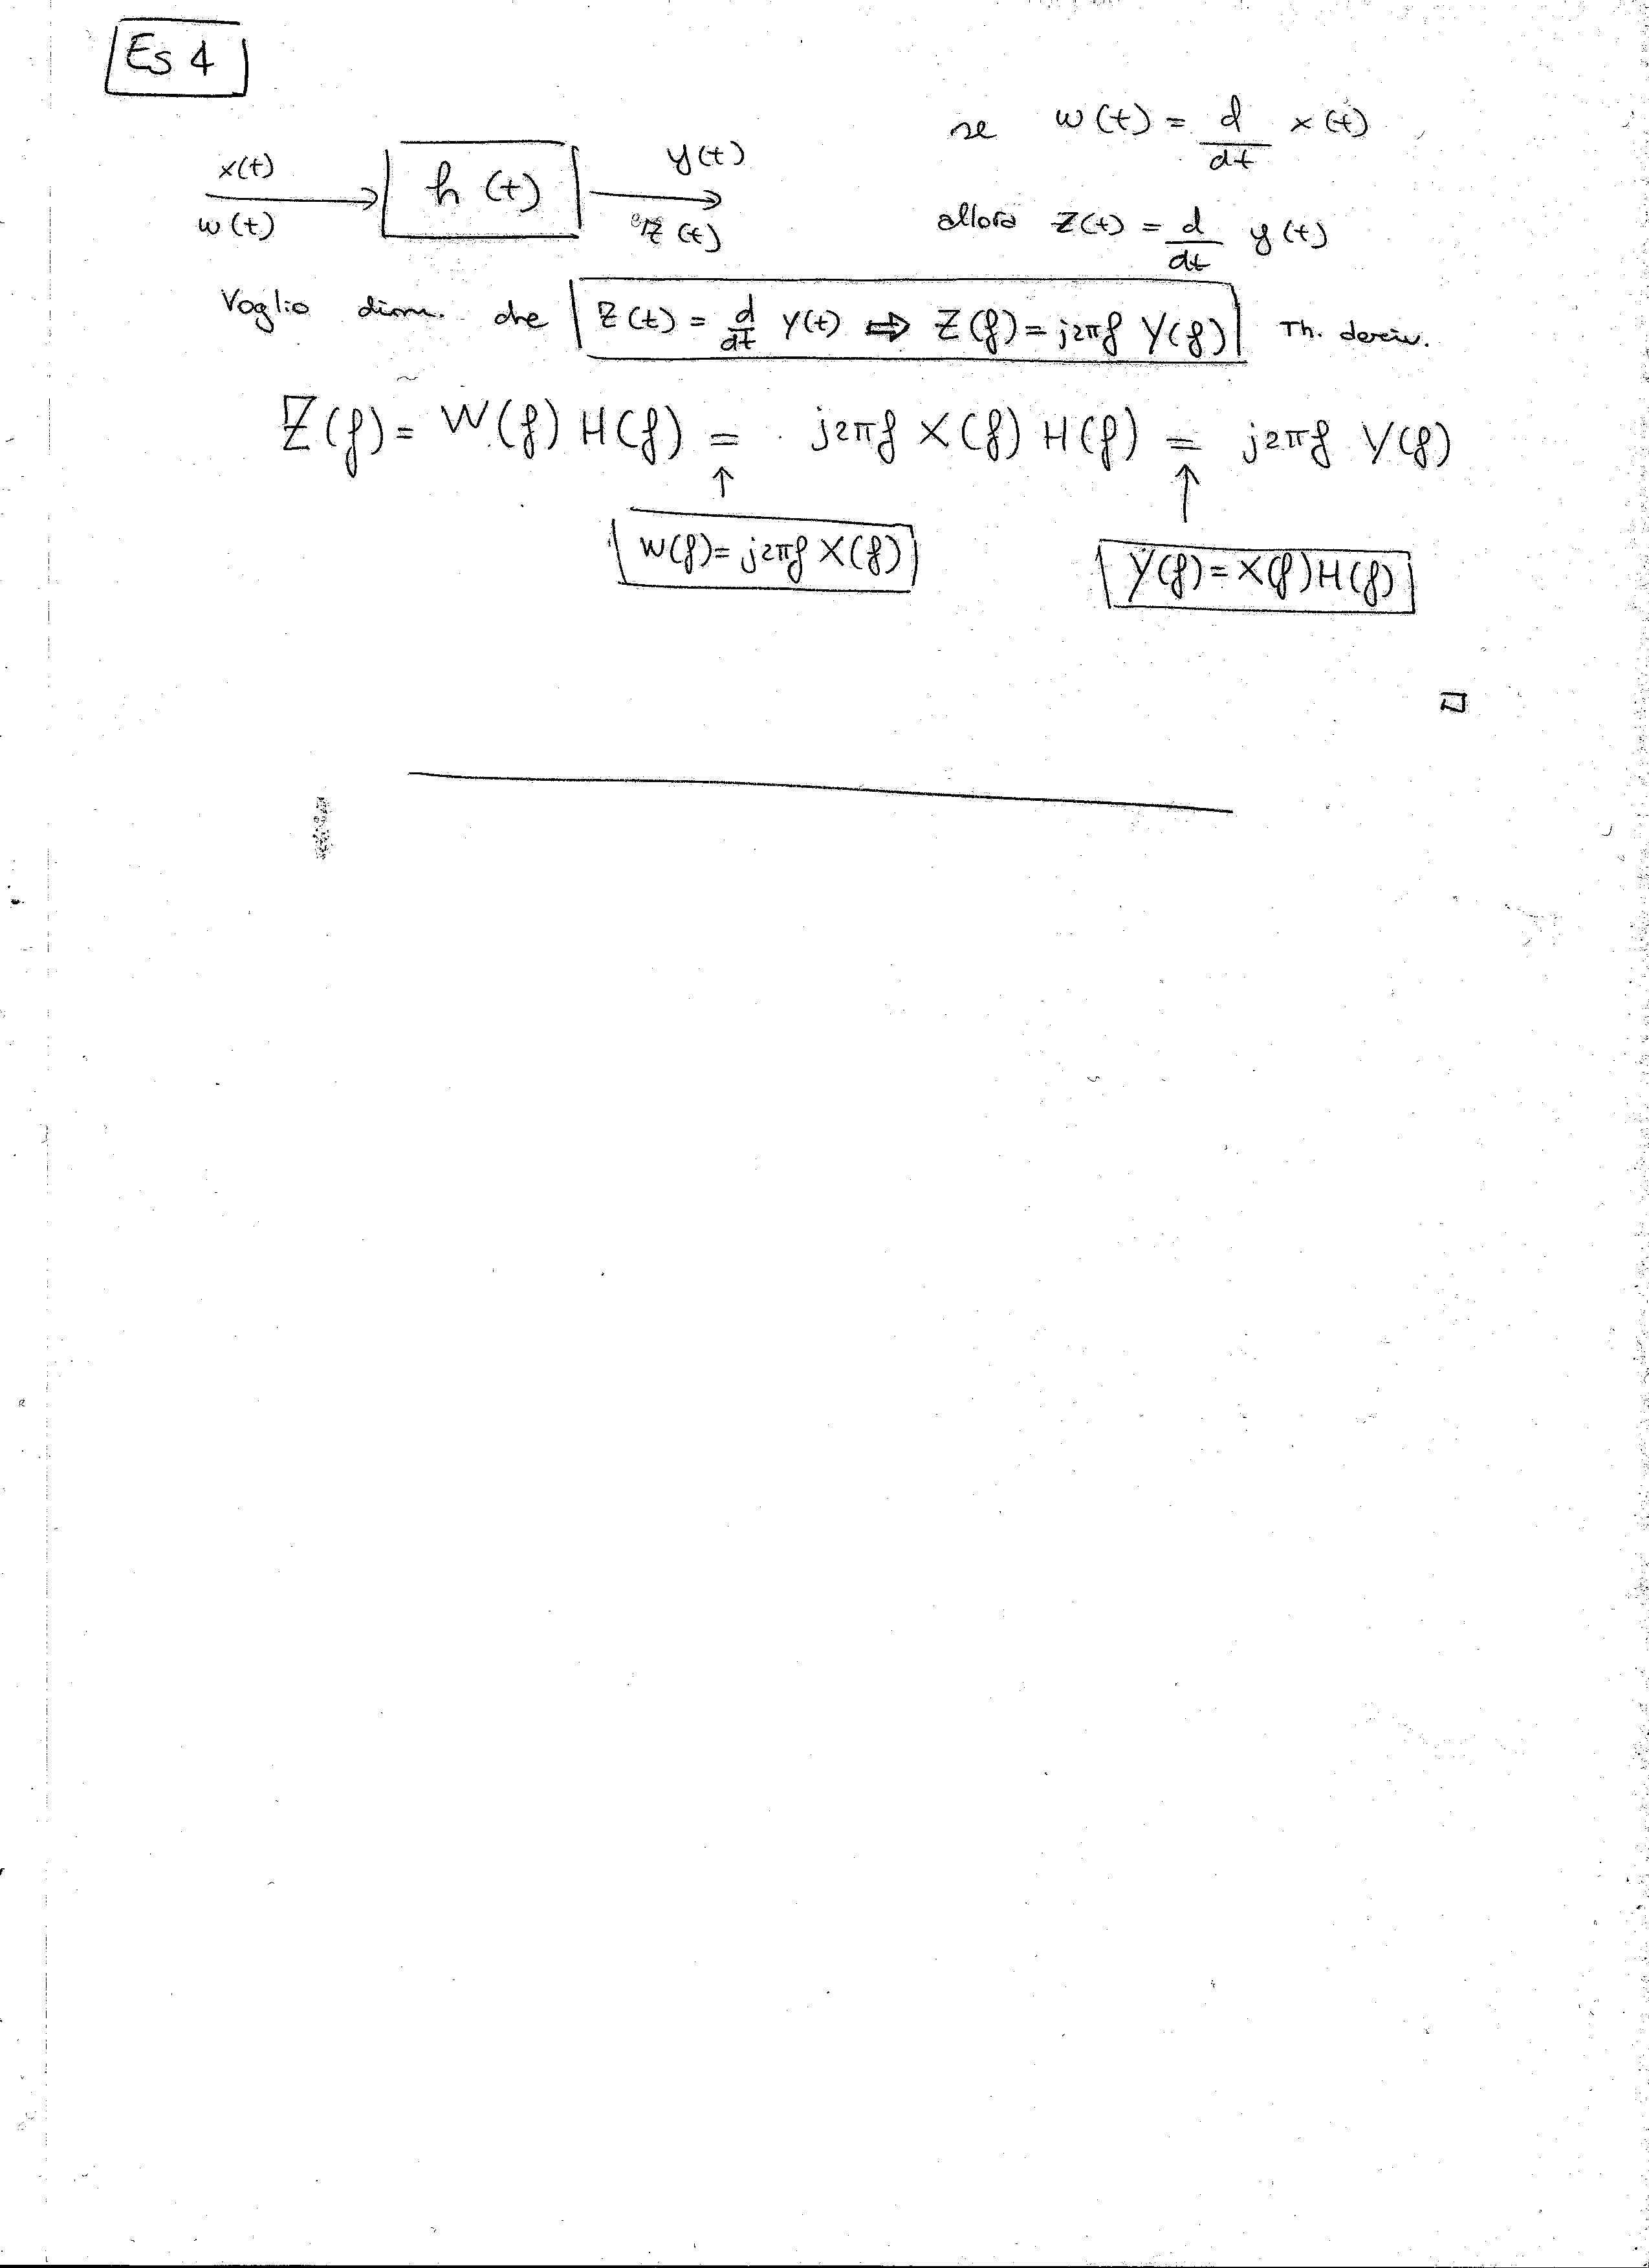 Es 4
se w(t) = d/dt x(t)
x(t) h(t) y(t)
w(t) z(t)
allora z(t) = d/dt y(t)
Voglio dim. che z(t) = d/dt y(t) ⇔ Z(f) = j2πf Y(f) Th. deriv.
Z(f) = W(f) H(f) = j2πf X(f) H(f) = j2πf Y(f)
↑ ↑
W(f) = j2πf X(f) Y(f) = X(f) H(f)